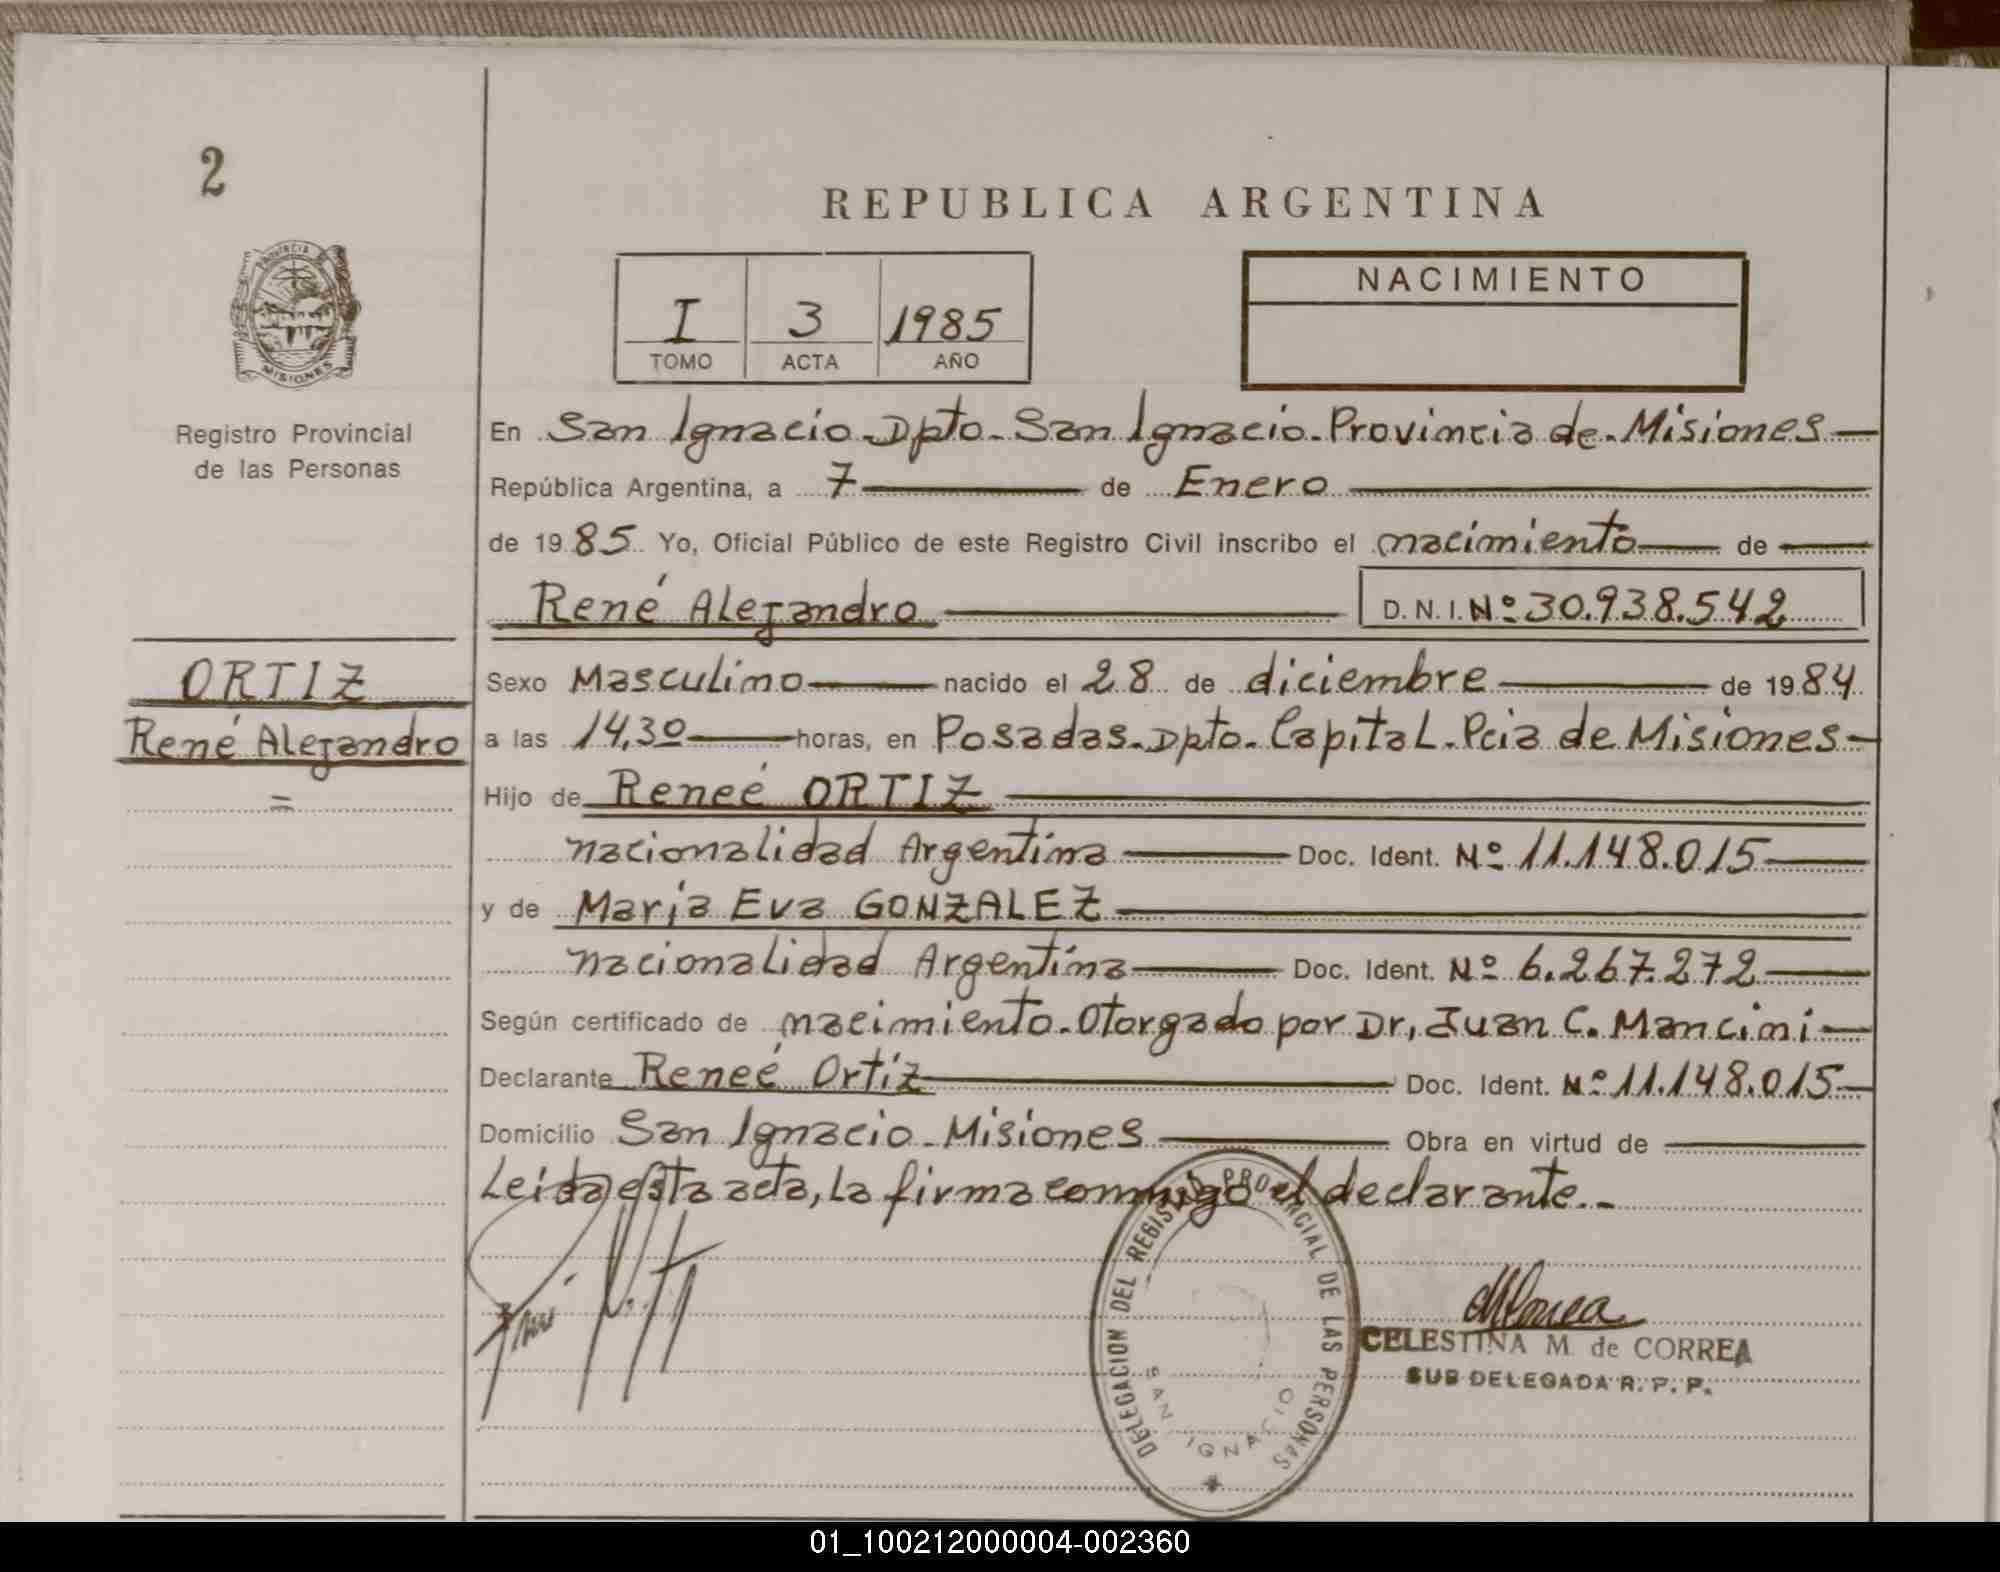 2
REPUBLICA ARGENTINA
PROVINCIA DE
MISIONES
Registro Provincial
de las Personas
I 3 1985
TOMO ACTA AÑO
NACIMIENTO
En San Ignacio - Dpto - San Ignacio - Provincia de - Misiones —
República Argentina, a 7 — de Enero —
de 1985 Yo, Oficial Público de este Registro Civil inscribo el nacimiento — de —
René Alejandro — D. N. I. Nº 30.938.542
ORTIZ
René Alejandro
=
Sexo Masculino — nacido el 28 de diciembre — de 1984
a las 14,30 — horas, en Posadas - Dpto - Capital - Pcia de Misiones —
Hijo de Reneé ORTIZ —
nacionalidad Argentina — Doc. Ident. Nº 11.148.015 —
y de María Eva GONZALEZ —
nacionalidad Argentina — Doc. Ident. Nº 6.267.272 —
Según certificado de nacimiento - Otorgado por Dr, Juan C. Mancini —
Declarante Reneé Ortíz — Doc. Ident. Nº 11.148.015 —
Domicilio San Ignacio - Misiones — Obra en virtud de —
Leída esta acta, la firma conmigo el declarante.-
DELEGACION DEL REGISTRO PROVINCIAL DE LAS PERSONAS
SAN IGNACIO
CELESTINA M. de CORREA
SUB DELEGADA R. P. P.
01_100212000004-002360